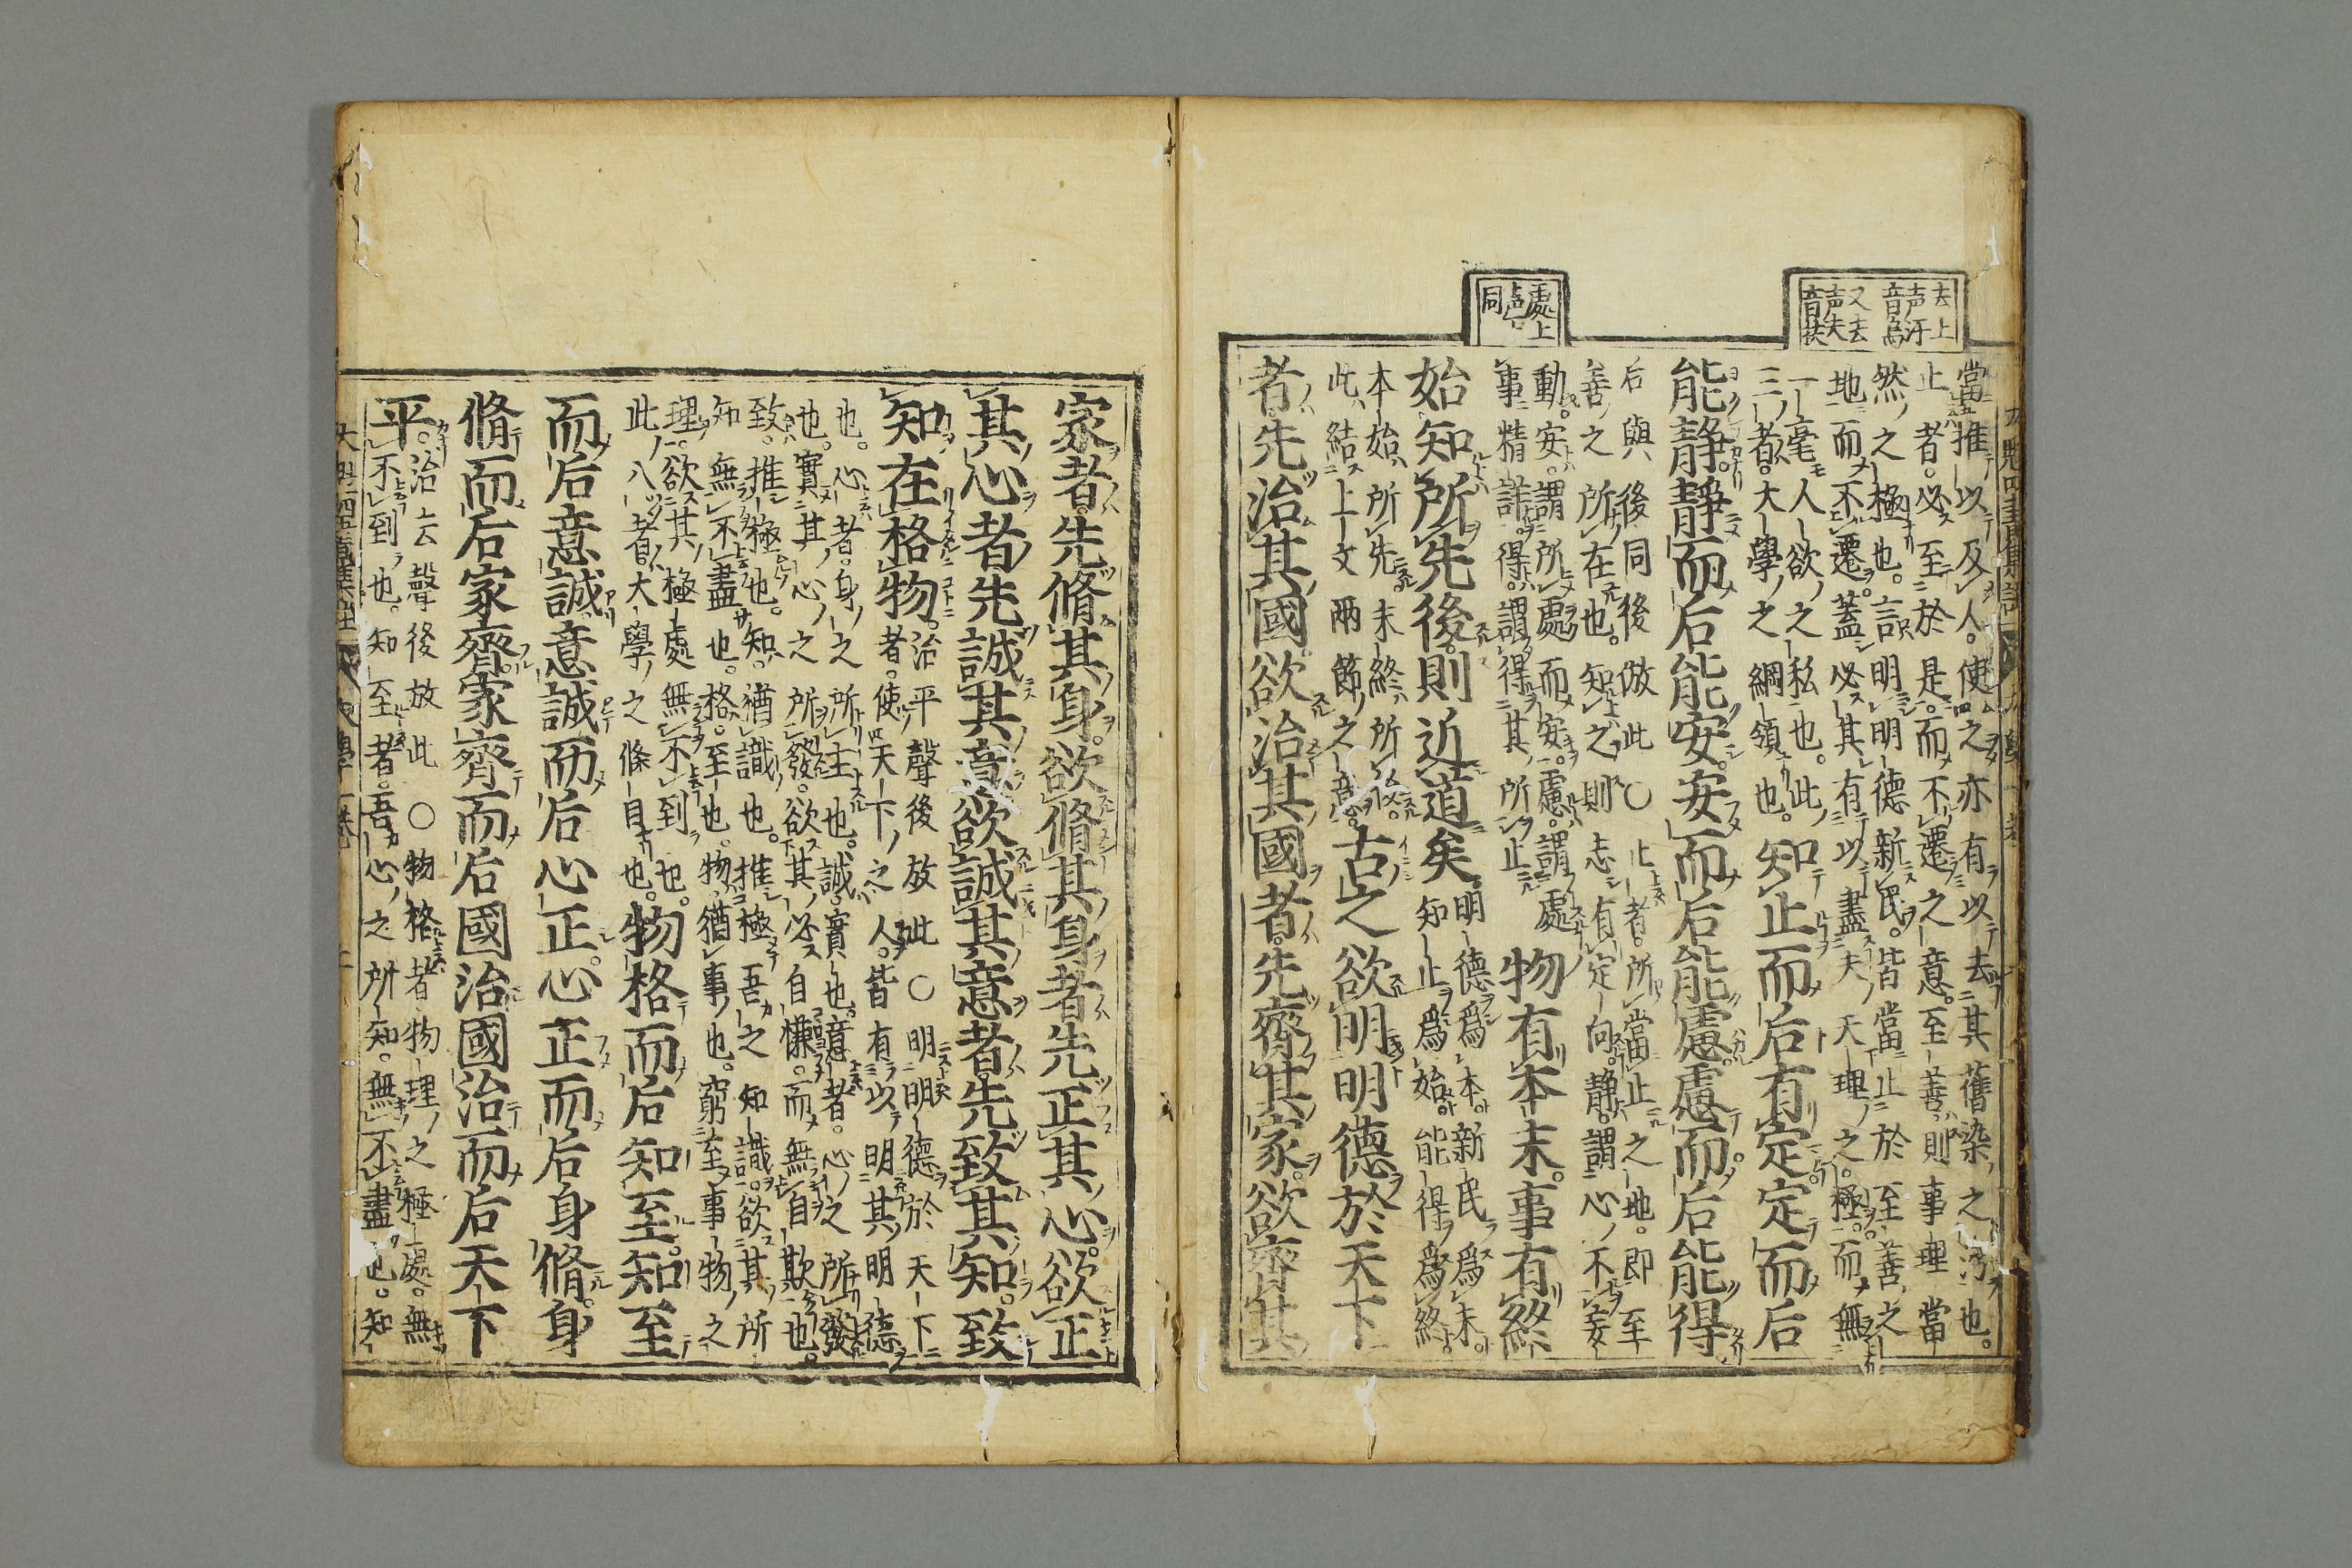 去上
声汙
音烏
又去
声夫
音扶
處上
声
同
當推以及人。使之亦有以去其舊染之汚也。
止者。必至於是。而不遷之意。至善則事理當
然之極也。言明明德新民。皆當止於至善之
地而不遷。蓋必其有以盡夫天理之極。而無
一毫人欲之私也。此
三者。大學之綱領也。知止而后有定定而后
能静。静而后能安。安而后能慮。慮而后能得。
后與後同後倣此○止者。所當止之地。即至
善之所在也。知之則志有定向。静。謂心不妄
動。安。謂所處而安。慮。謂處
事精詳。得。謂得其所止。
物有本末。事有終
始知所先後。則近道矣。
明德爲本。新民爲末。
知止爲始。能得爲終。
本始所先末終所後。
此結上文兩節之意。
古之欲明明德於天下
者。先治其國。欲治其國者。先齊其家。欲齊其
家者。先脩其身。欲脩其身者先正其心。欲正
其心者先誠其意欲誠其意者。先致其知。致
知在格物。
治平聲後放此○明明德於天下
者。使天下之人。皆有以明其明德
也。心者。身之所主也。誠。實也。意者。心之所發
也。實其心之所發。欲其必自慊。而無自欺也。
致。推極也。知猶識也。推極吾之知識。欲其所
知無不盡也。格。至也。物猶事也。窮至事物之
理。欲其極處無不到也。
此八者。大學之條目也。
物格而后知至。知至
而后意誠意誠而后心正。心正而后身脩。身
脩而后家齊。家齊而后國治國治而后天下
平。
治去聲後放此○物格者物理之極處。無
不到也。知至者。吾心之所知。無不盡也。知